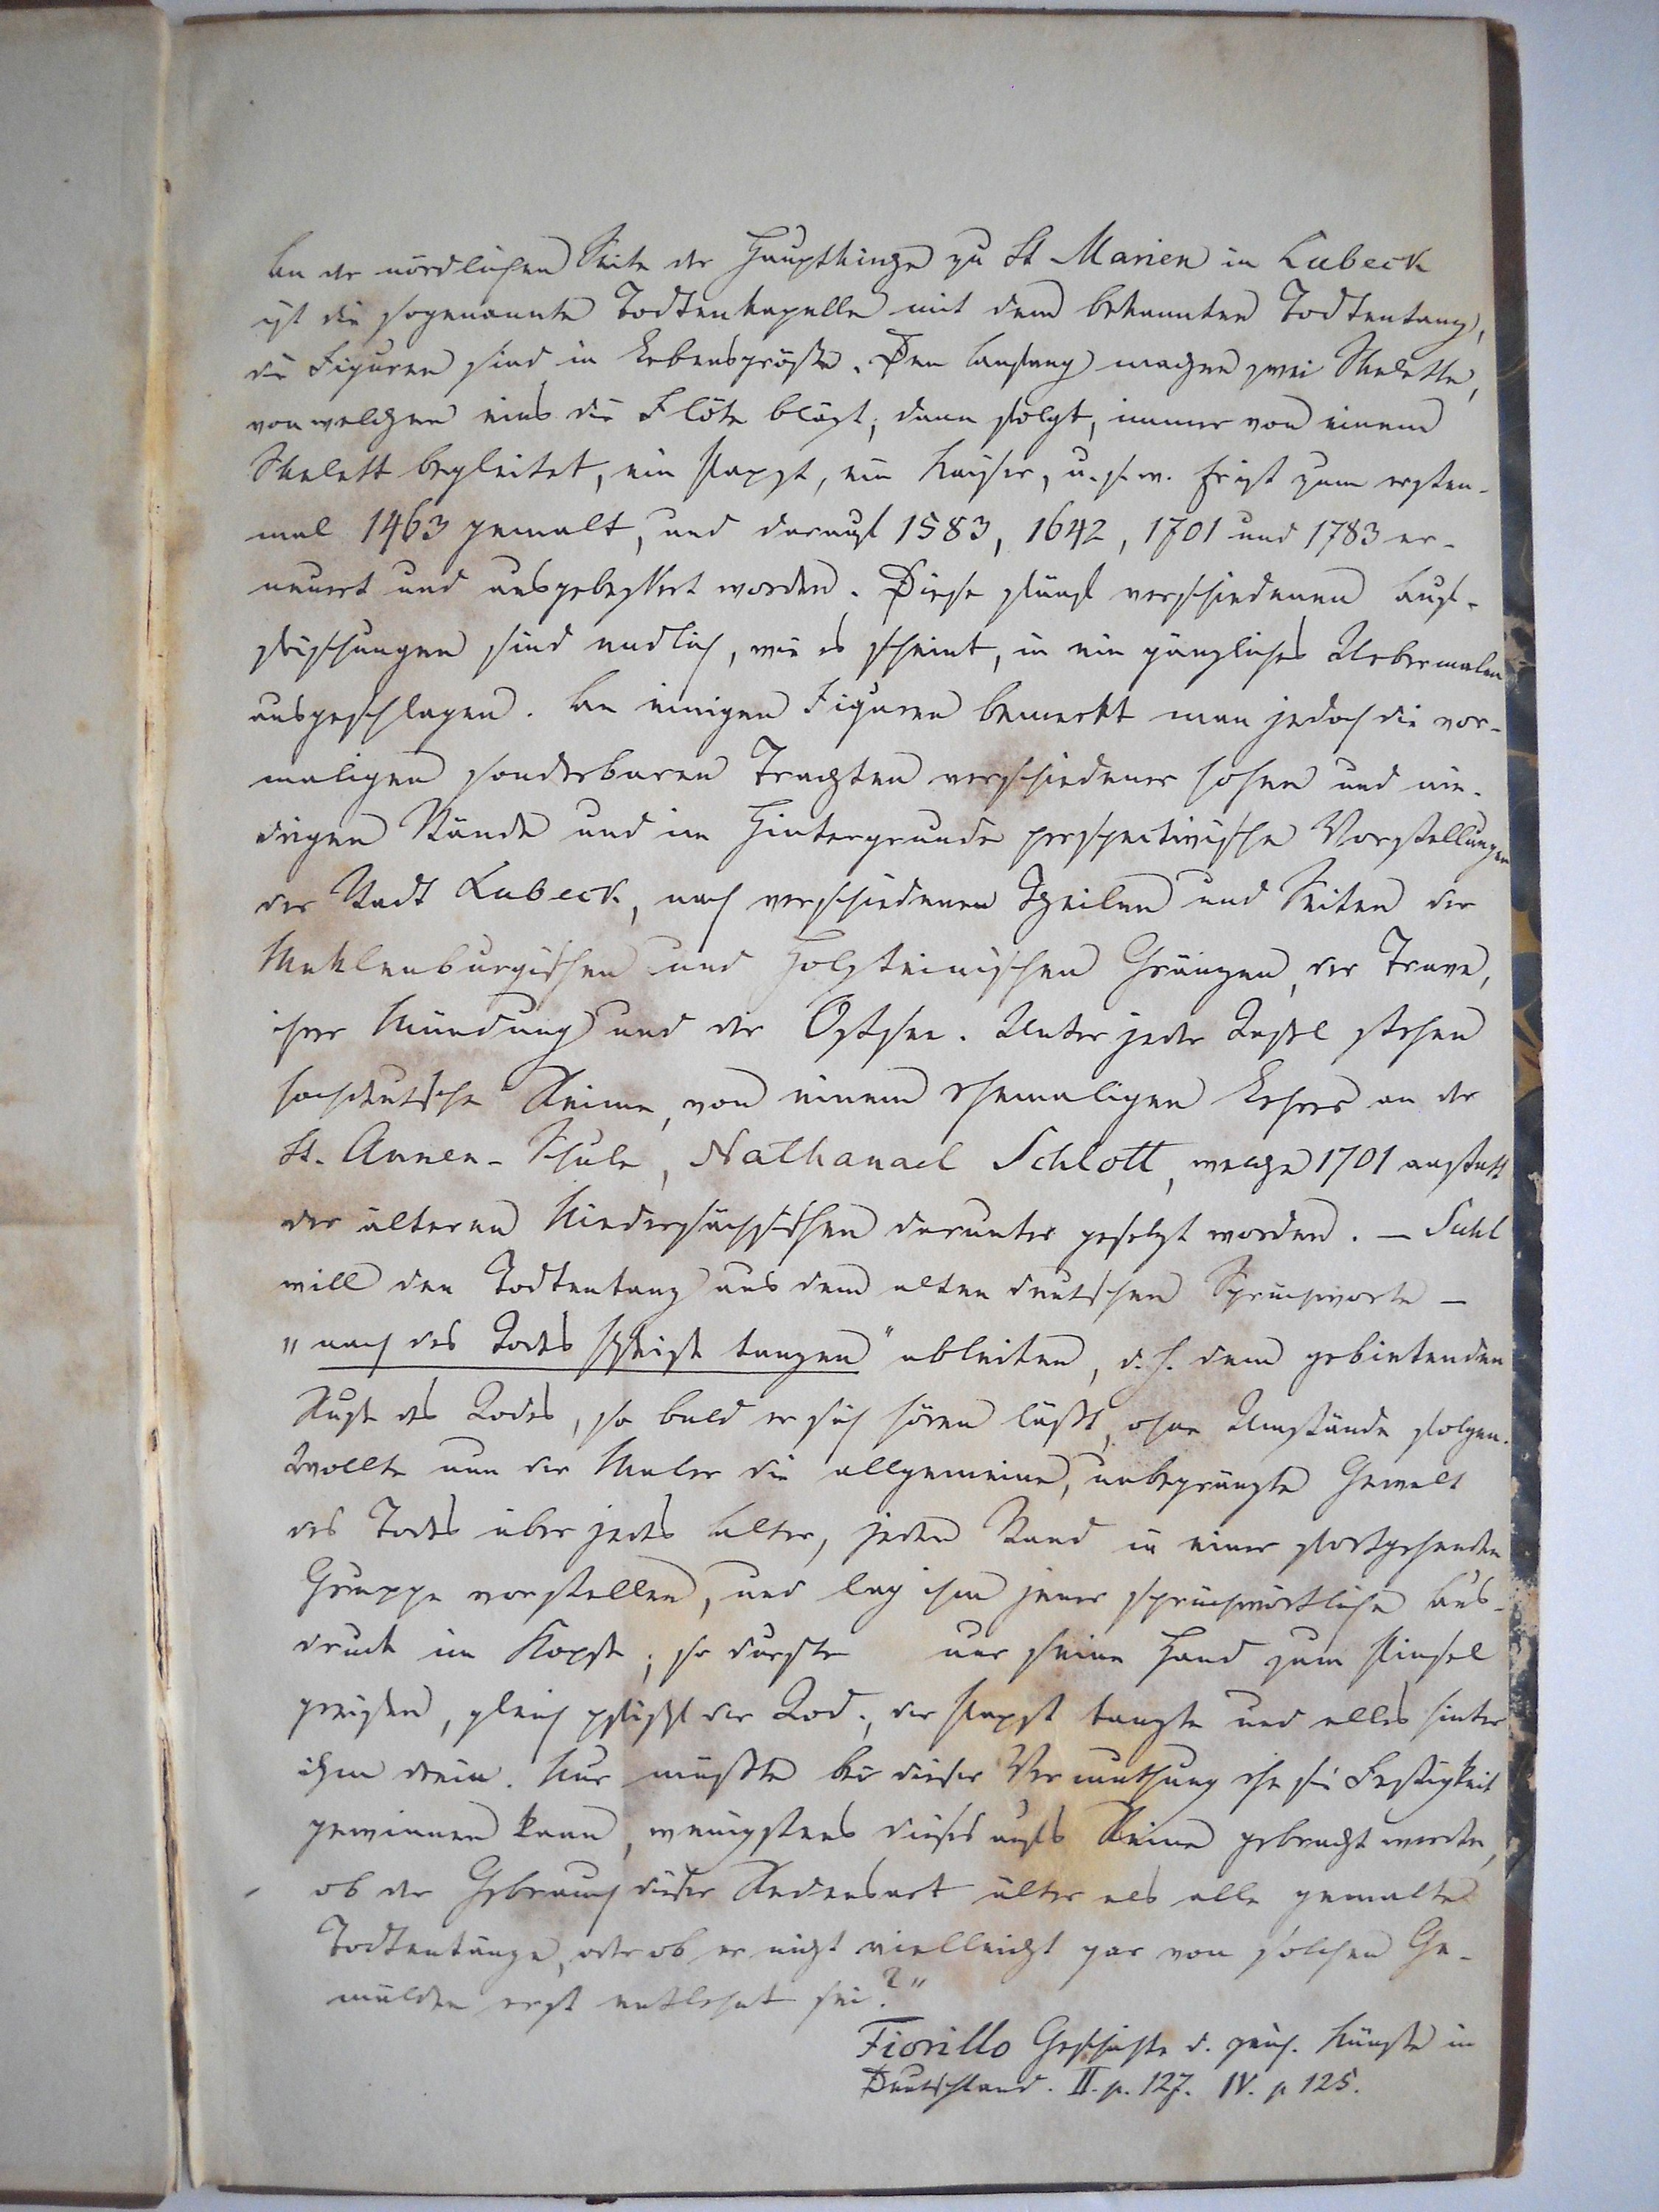 An der nördlichen Seite der Hauptkirche zu St Marien in Lübeck
ist die sogenannte Todtenkapelle mit dem bekannten Todtentanz,
die Figuren sind in Lebensgröße. Den Anfang machen zwei Skelette,
von welchen eins die Flöte bläst; dann folgt, immer von einem
Skelett begleitet, ein Papst, ein Kaiser, u. s. w. Er ist zum ersten-
mal 1463 gemalt, und darauf 1583, 1642, 1701 und 1783 er-
neuert und ausgebessert worden. Diese fünf verschiedenen Auf-
frischungen sind endlich, wie es scheint, in ein gänzliches Uebermalen
ausgeschlagen. An einigen Figuren bemerkt man jedoch die vor-
maligen sonderbaren Trachten verschiedener hohen und nie-
drigen Stände und im Hintergrunde perspectivische Vorstellungen
der Stadt Lübeck, nach verschiedenen Theilen und Seiten der
Meklenburgischen und Holsteinischen Gränzen, der Trave,
ihrer Mündung und der Ostsee. Unter jeder Tafel stehen
hochdeutsche Reime, von einem ehemaligen Lehrer an der
St. Annen-Schule, Nathanael Schlott, welche 1701 anstatt
der älteren Niedersächsischen darunter gesetzt worden. — Suhl
will den Todtentanz aus dem alten deutschen Sprüchworte —
„nach des Todes Pfeife tanzen" ableiten, d. h. dem gebietenden
Rufe des Todes, so bald er sich hören läßt, ohne Umstände folgen.
Wollte nun der Maler die allgemeine, unbegränzte Gewalt
des Todes über jedes Alter, jeden Stand in einer fortgehenden
Gruppe vorstellen, und lag ihm jener sprüchwörtliche Aus-
druck im Kopfe; so durfte nur seine Hand zum Pinsel
greifen, gleich pfiff der Tod, der Papst tanzte und alles hinter
ihm drein. Nur müßte bei dieser Vermuthung ehe sie Festigkeit
gewinnen kann, wenigstens dieses aufs Reine gebracht werden,
ob der Gebrauch dieser Redensart älter als alle gemalte
Todtentänze, oder ob er nicht vielleicht gar von solchen Ge-
mälden erst entlehnt sei?"
Fiorillo Geschichte d. zeich. Künste in
Deutschland. II. p. 127. IV. p 125.